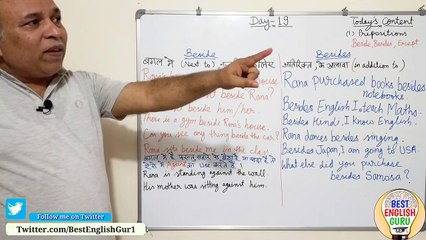 Day-19
Today's Content
(1) Prepositions
Beside, Besides, Except
Beside
बगल में (Next to)
Besides
अतिरिक्त, के अलावा (in addition to)
beside Rana?
beside him/her
There is a gym beside Rana's house.
Can you see any thing beside the car?
Rana sits beside me in the class.
Rana is standing against the wall.
His mother was sitting against him.
Rana purchased books besides
notebooks.
Besides English I teach Maths.
Besides Hindi, I know English.
Rana dances besides singing.
Besides Japan, I am going to USA
What else did you purchase
besides Samosa?
Follow me on Twitter
Twitter.com/BestEnglishGur1
BEST
ENGLISH
GURU